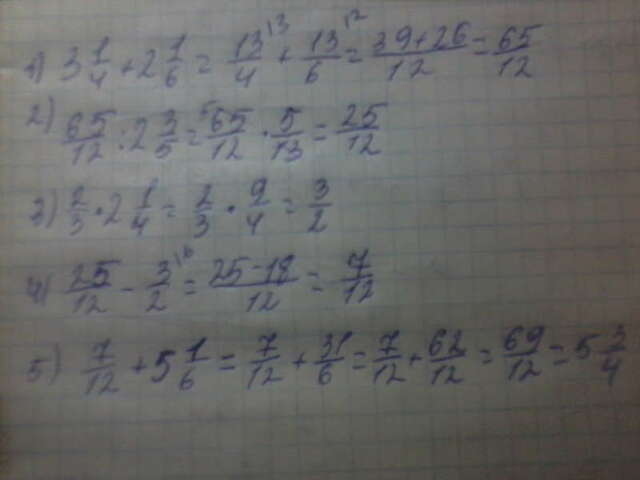 1) 3 1/4 + 2 1/6 = 13/4 + 13/6 = 39+26/12 = 65/12
2) 65/12 : 2 3/5 = 65/12 · 5/13 = 25/12
3) 2/3 · 2 1/4 = 2/3 · 9/4 = 3/2
4) 25/12 - 3/2 = 25-18/12 = 7/12
5) 7/12 + 5 1/6 = 7/12 + 31/6 = 7/12 + 62/12 = 69/12 = 5 3/4